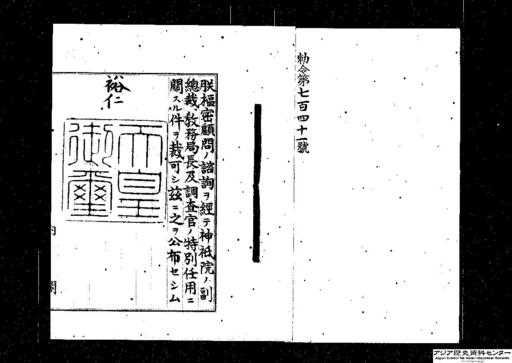 勅令第七百四十一號
朕樞密顧問ノ諮詢ヲ經テ神祇院ノ副
總裁、教務局長及調査官ノ特別任用ニ
關スル件ヲ裁可シ茲ニ之ヲ公布セシム
裕仁
天皇
御璽
内閣
アジア歴史資料センター
Japan Center for Asian Historical Records